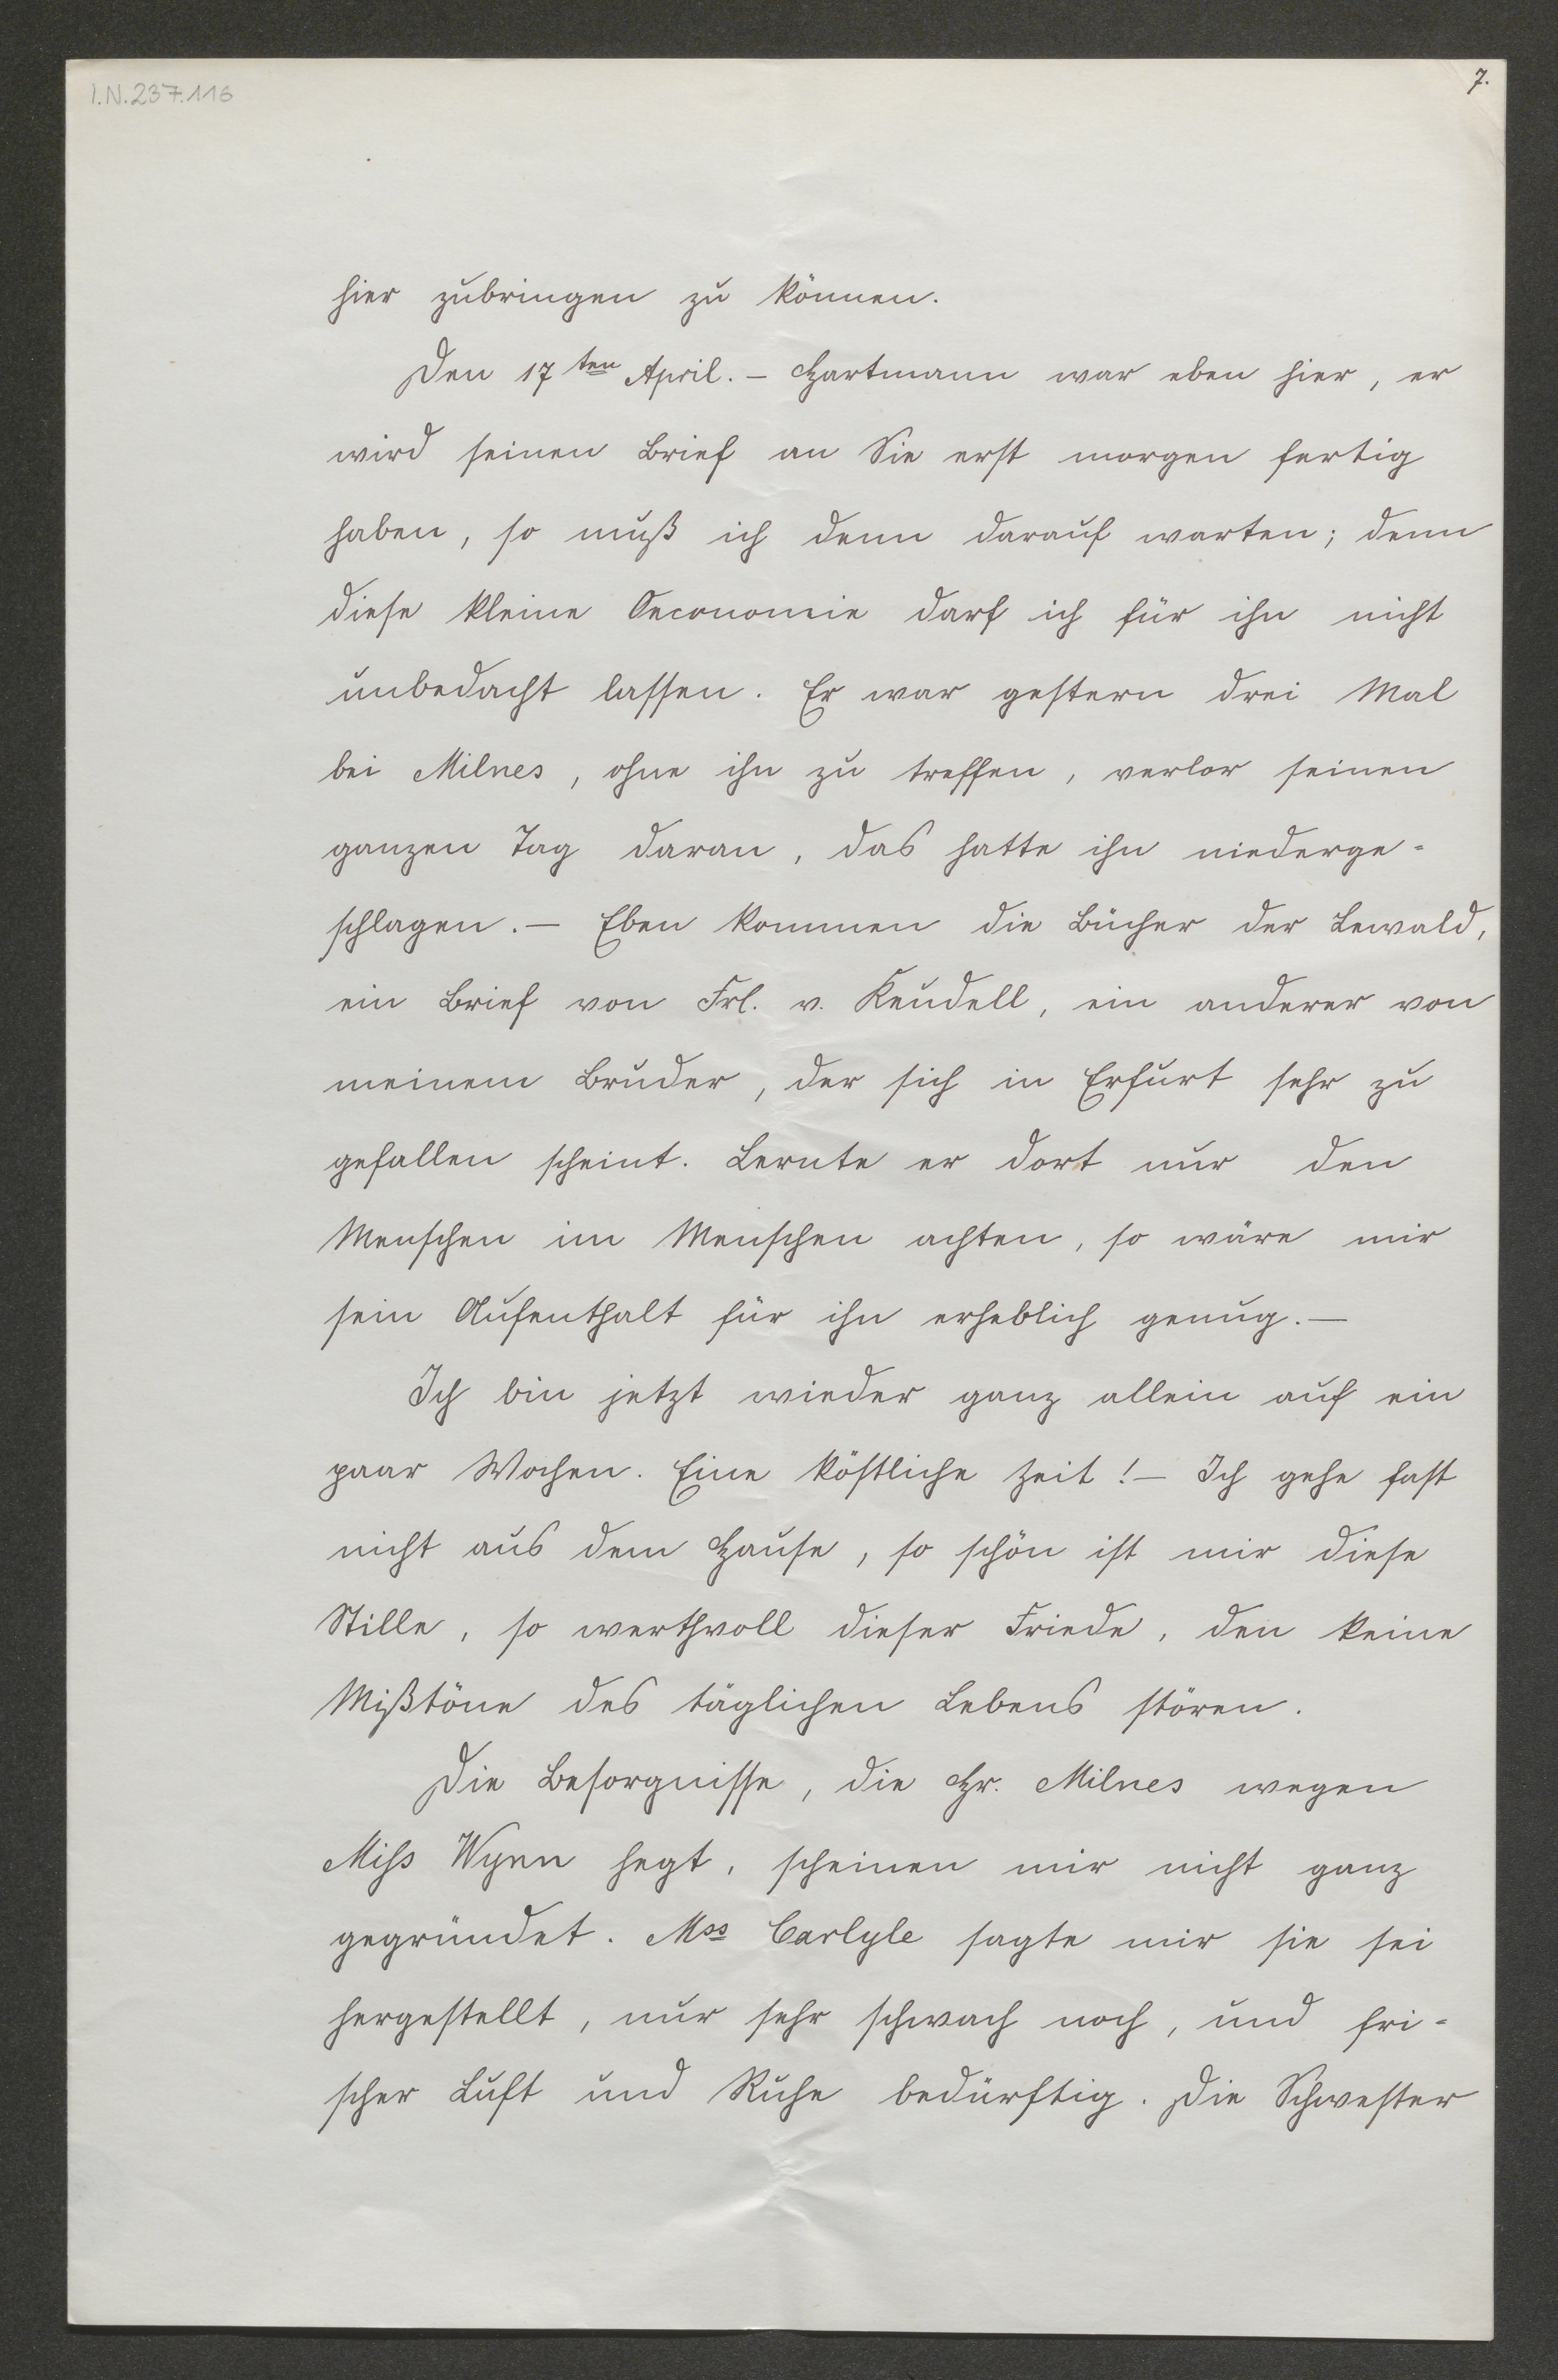 I.N.237.116
7.
hier zubringen zu können.
Den 17ten April. – Hartmann war eben hier, er
wird seinen Brief an Sie erst morgen fertig
haben, so muß ich denn darauf warten; denn
diese kleine Oeconomie darf ich für ihn nicht
unbedacht lassen. Er war gestern drei Mal
bei Milnes, ohne ihn zu treffen, verlor seinen
ganzen Tag daran, das hatte ihn niederge-
schlagen. – Eben kommen die Bücher der Lewald,
ein Brief von Frl. v. Keudell, ein anderer von
meinem Bruder, der sich in Erfurt sehr zu
gefallen scheint. Lernte er dort nur den
Menschen im Menschen achten, so wäre mir
sein Aufenthalt für ihn erheblich genug. –
Ich bin jetzt wieder ganz allein auf ein
paar Wochen. Eine köstliche Zeit! – Ich gehe fast
nicht aus dem Hause, so schön ist mir diese
Stille, so werthvoll dieser Friede, den keine
Mißtöne des täglichen Lebens stören.
Die Besorgnisse, die Hr. Milnes wegen
Miss Wynn hegt, scheinen mir nicht ganz
gegründet. Mss Carlyle sagte mir sie sei
hergestellt, nur sehr schwach noch, und fri-
scher Luft und Ruhe bedürftig. Die Schwester